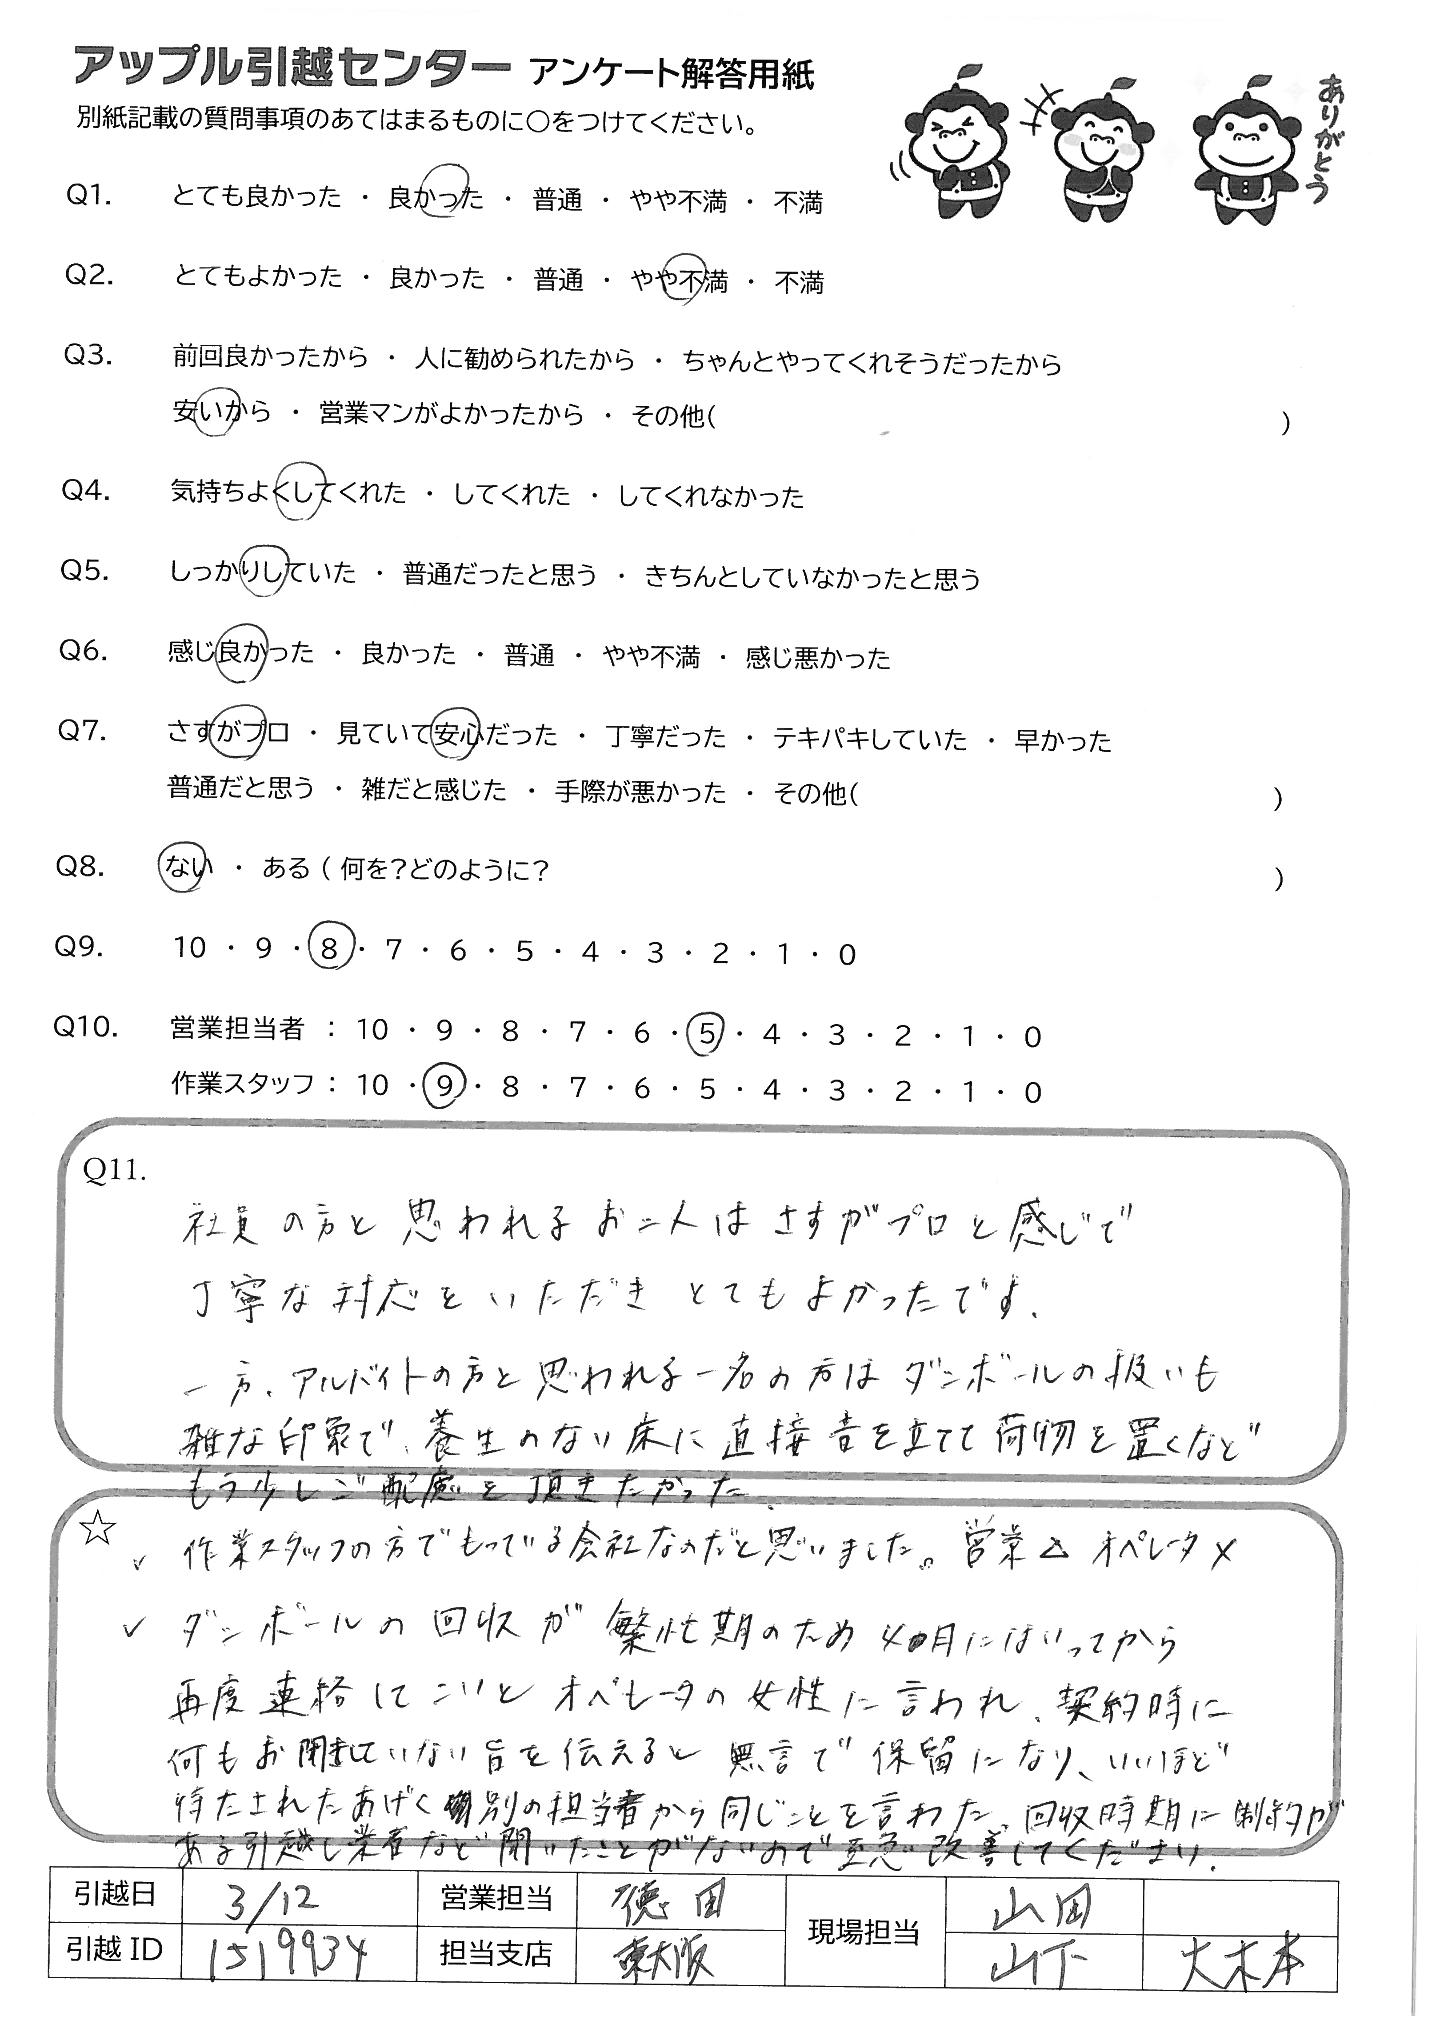 アップル引越センター アンケート解答用紙
別紙記載の質問事項のあてはまるものに○をつけてください。
ありがとう
Q1. とても良かった ・ 良かった ・ 普通 ・ やや不満 ・ 不満
Q2. とてもよかった ・ 良かった ・ 普通 ・ やや不満 ・ 不満
Q3. 前回良かったから ・ 人に勧められたから ・ ちゃんとやってくれそうだったから
安いから ・ 営業マンがよかったから ・ その他( )
Q4. 気持ちよくしてくれた ・ してくれた ・ してくれなかった
Q5. しっかりしていた ・ 普通だったと思う ・ きちんとしていなかったと思う
Q6. 感じ良かった ・ 良かった ・ 普通 ・ やや不満 ・ 感じ悪かった
Q7. さすがプロ ・ 見ていて安心だった ・ 丁寧だった ・ テキパキしていた ・ 早かった
普通だと思う ・ 雑だと感じた ・ 手際が悪かった ・ その他( )
Q8. ない ・ ある ( 何を?どのように? )
Q9. 10 ・ 9 ・ 8 ・ 7 ・ 6 ・ 5 ・ 4 ・ 3 ・ 2 ・ 1 ・ 0
Q10. 営業担当者 : 10 ・ 9 ・ 8 ・ 7 ・ 6 ・ 5 ・ 4 ・ 3 ・ 2 ・ 1 ・ 0
作業スタッフ : 10 ・ 9 ・ 8 ・ 7 ・ 6 ・ 5 ・ 4 ・ 3 ・ 2 ・ 1 ・ 0
Q11.
社員の方と思われるお二人はさすがプロと感じで
丁寧な対応をいただきとてもよかったです.
一方、アルバイトの方と思われる一名の方はダンボールの扱いも
雑な印象で、養生のない床に直接音を立てて荷物を置くなど
もう少しご配慮を頂きたかった.
☆
✓ 作業スタッフの方でもっている会社なのだと思いました。営業△ オペレータ×
✓ ダンボールの回収が繁忙期のため4月にはいってから
再度連絡してこいとオペレータの女性に言われ、契約時に
何もお聞きしていない旨を伝えると無言で保留になり、いいほど
待たされたあげく別の担当者から同じことを言われた、回収時期に制約が
ある引越し業者など聞いたことがないので至急改善してください.
引越日 3/12 営業担当 德田 現場担当 山田
引越ID 1519934 担当支店 東大阪 山下 大木本